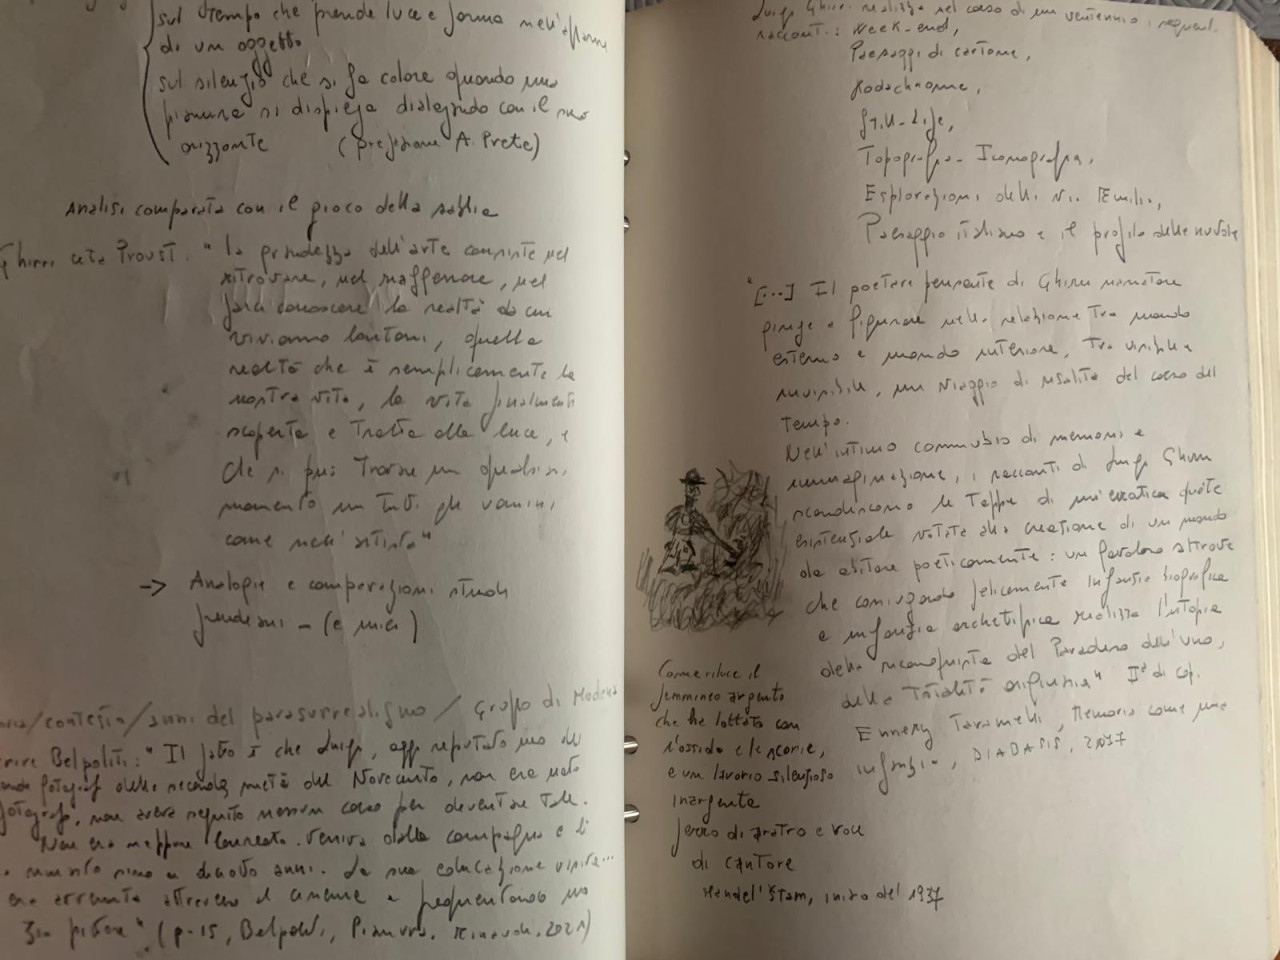 sul tempo che prende luce e forma nell'
di un oggetto
sul silenzio che si fa colore quando una
pianura si dispiega dialogando con il suo
orizzonte (prefazione A. Prete)
Analisi comparata con il gioco della sabbia
Ghirri cita Proust: "la grandezza dell'arte consiste nel
ritrovare, nel riafferrare, nel
farci conoscere la realtà da cui
viviamo lontani, quella
realtà che è semplicemente la
nostra vita, la vita finalmente
scoperta e tratta alla luce, e
che si può trovare in qualsiasi
momento in tutti gli uomini,
come nell'artista"
-> Analogie e comparazioni studi
- (e miei)
/contesto/anni del parasurrealismo/ Grupo di Modena
Belpoliti: "Il fatto è che Luigi, oggi reputato uno dei
fotografi della seconda metà del Novecento, non era nato
fotografo, non aveva seguito nessun corso per diventare tale.
Non era neppure laureato. Veniva dalla campagna e lì
vissuto sino a dicotto anni. La sua educazione visiva...
era avvenuta attraverso il cinema e frequentando uno
zio pittore" (p. 15, Belpoliti, Pianura, Einaudi, 2021)
Luigi Ghirri realizza nel corso di un ventennio i seguenti
racconti: Week-end,
Paesaggi di cartone,
Kodachrome,
Still-Life,
Topografia-Iconografia,
Esplorazioni della Via Emilia,
Paesaggio italiano e il profilo delle nuvole
"[...] Il poetare pensante di Ghirri narratore
giunge a figurare nella relazione tra mondo
esterno e mondo interiore, tra visibile e
invisibile, un viaggio di risalita del corso del
tempo.
Nell'intimo connubio di memoria e
immaginazione, i racconti di Luigi Ghirri
scandiscono le tappe di un'erratica quête
esistenziale votata alla creazione di un mondo
da abitare poeticamente: un favoloso altrove
che coniugando felicemente infanzia biografica
e infanzia archetipica realizza l'utopia
della riconquista del Paradiso dell'uno,
della totalità originaria" IIª di cop.
Ennery Taramelli, Memoria come una
infanzia, DIABASIS, 2017
Come riluce il
femmineo argento
che ha lottato con
l'ossido e le scorie,
e un lavorio silenzioso
inargenta
ferro di aratro e voce
di cantore
Mandel'štam, inizio del 1937